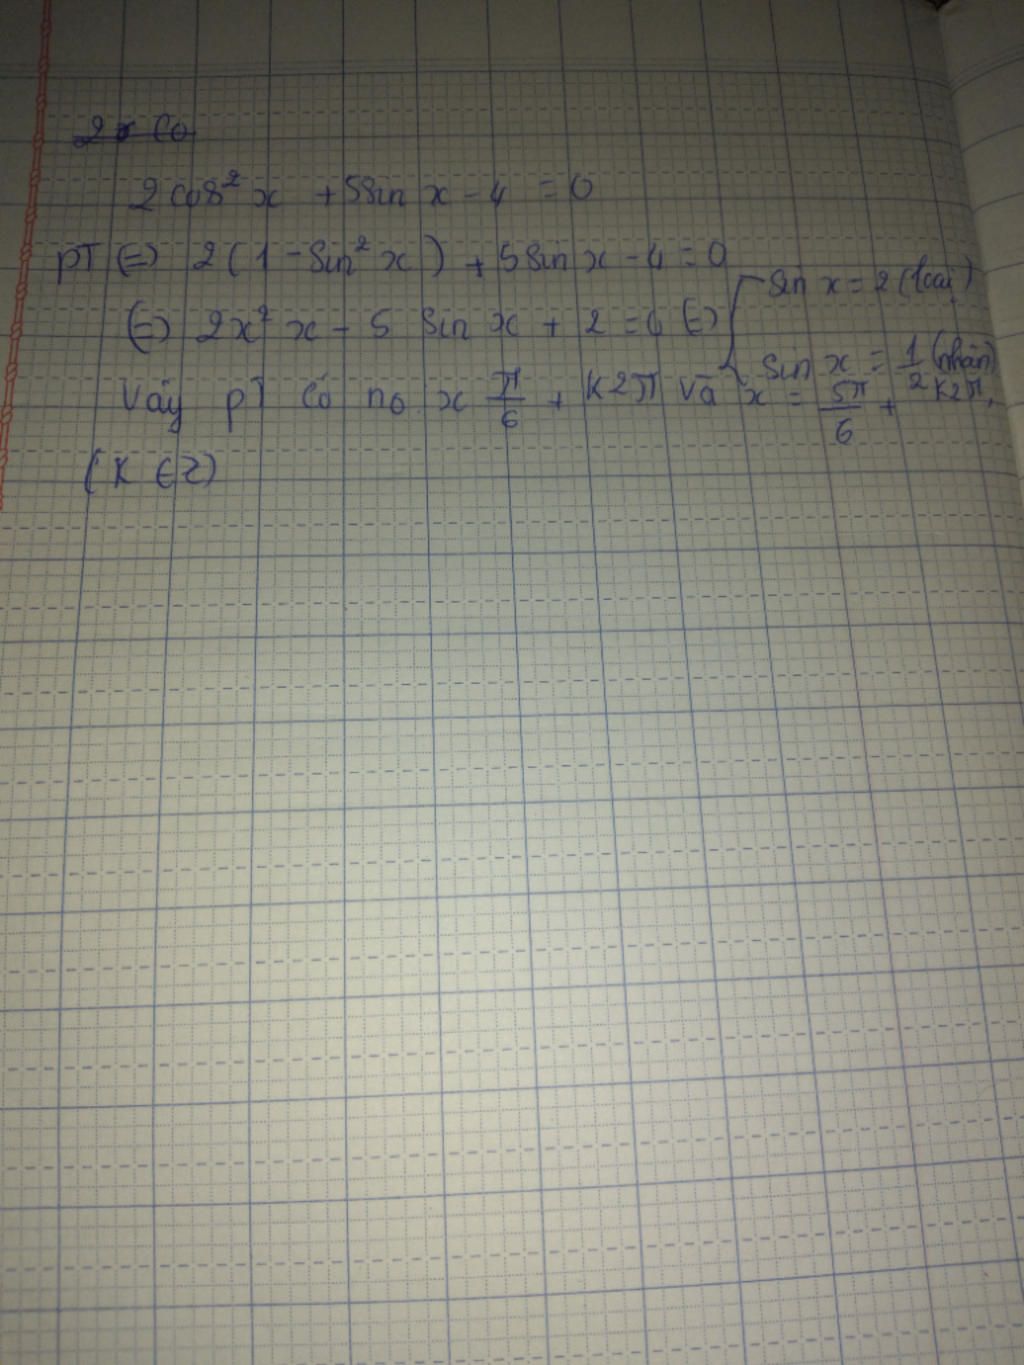 2 Co
2 cos² x + 5 sin x - 4 = 0
PT (=) 2 ( 1 - sin² x ) + 5 sin x - 4 = 0
(=) 2x² x - 5 sin x + 2 = 0 (=) [ sin x = 2 (loại)
sin x = 1/2 (nhận)
Vậy PT có no x π/6 + K2π và x = 5π/6 + K2π,
(K ∈ Z)